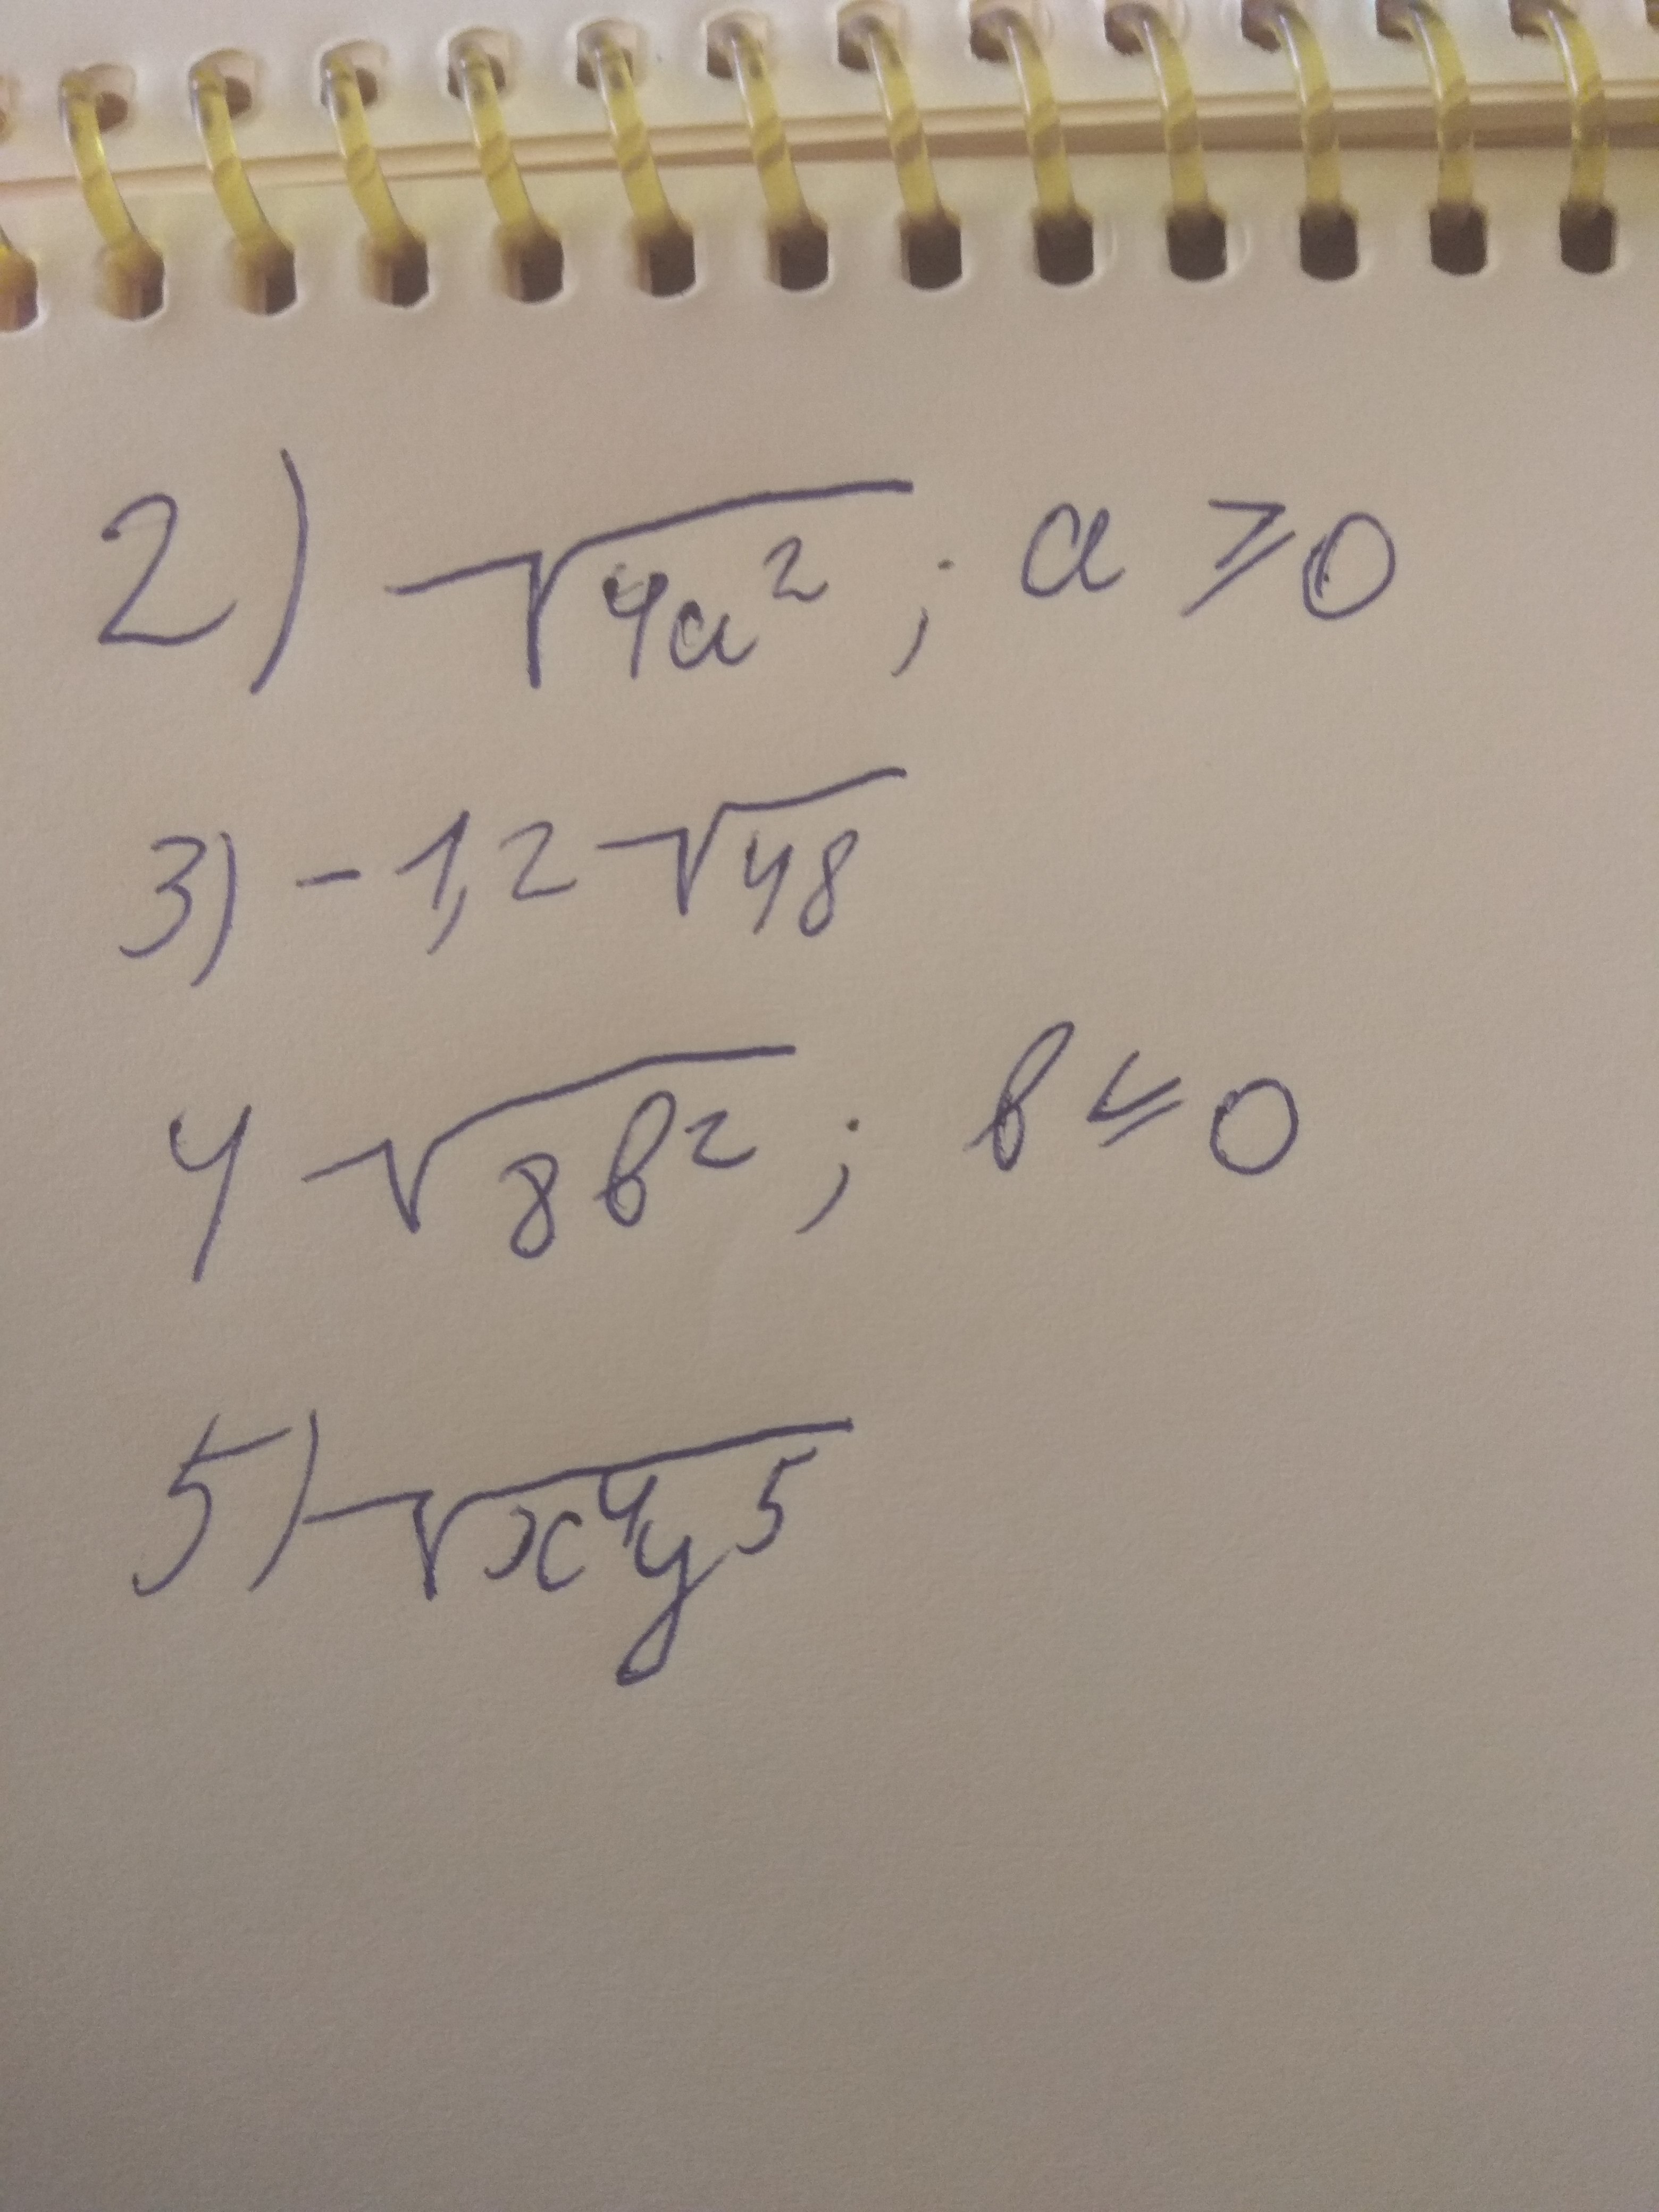 2) √4a²; a ⩾ 0
3) - 1,2 √48
4 √8b²; b ⩽ 0
5) √x⁴y⁵